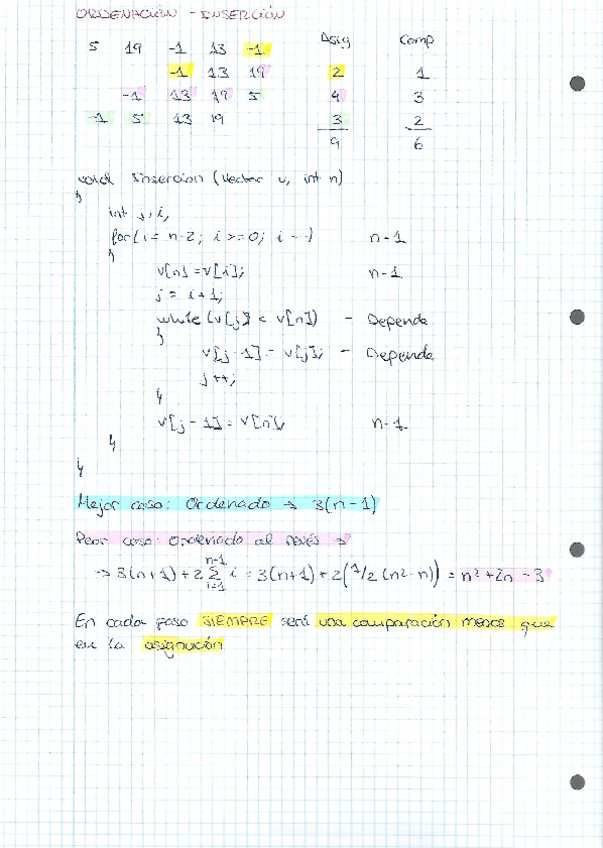 ORDENACIÓN - INSERCIÓN
5 19 -1 13 -1 Asig Comp
-1 13 19 2 1
-1 13 19 5 4 3
-1 5 13 19 3 2
9 6
void Insercion (Vector v, int n)
{
int j, i;
for(i = n-2; i >=0; i--) n-1
{
v[n] = v[i]; n-1
j = i+1;
while (v[j] < v[n]) - Depende
{
v[j-1] = v[j]; - Depende
j++;
}
v[j-1] = v[n]; n-1
}
}
Mejor caso: Ordenado → 3(n-1)
Peor caso: Ordenado al revés →
→ 3(n+1) + 2 n-1 Σ i=1 i = 3(n+1) + 2(1/2 (n²-n)) = n² + 2n - 3
En cada paso SIEMPRE será una comparación menos que
en la asignación